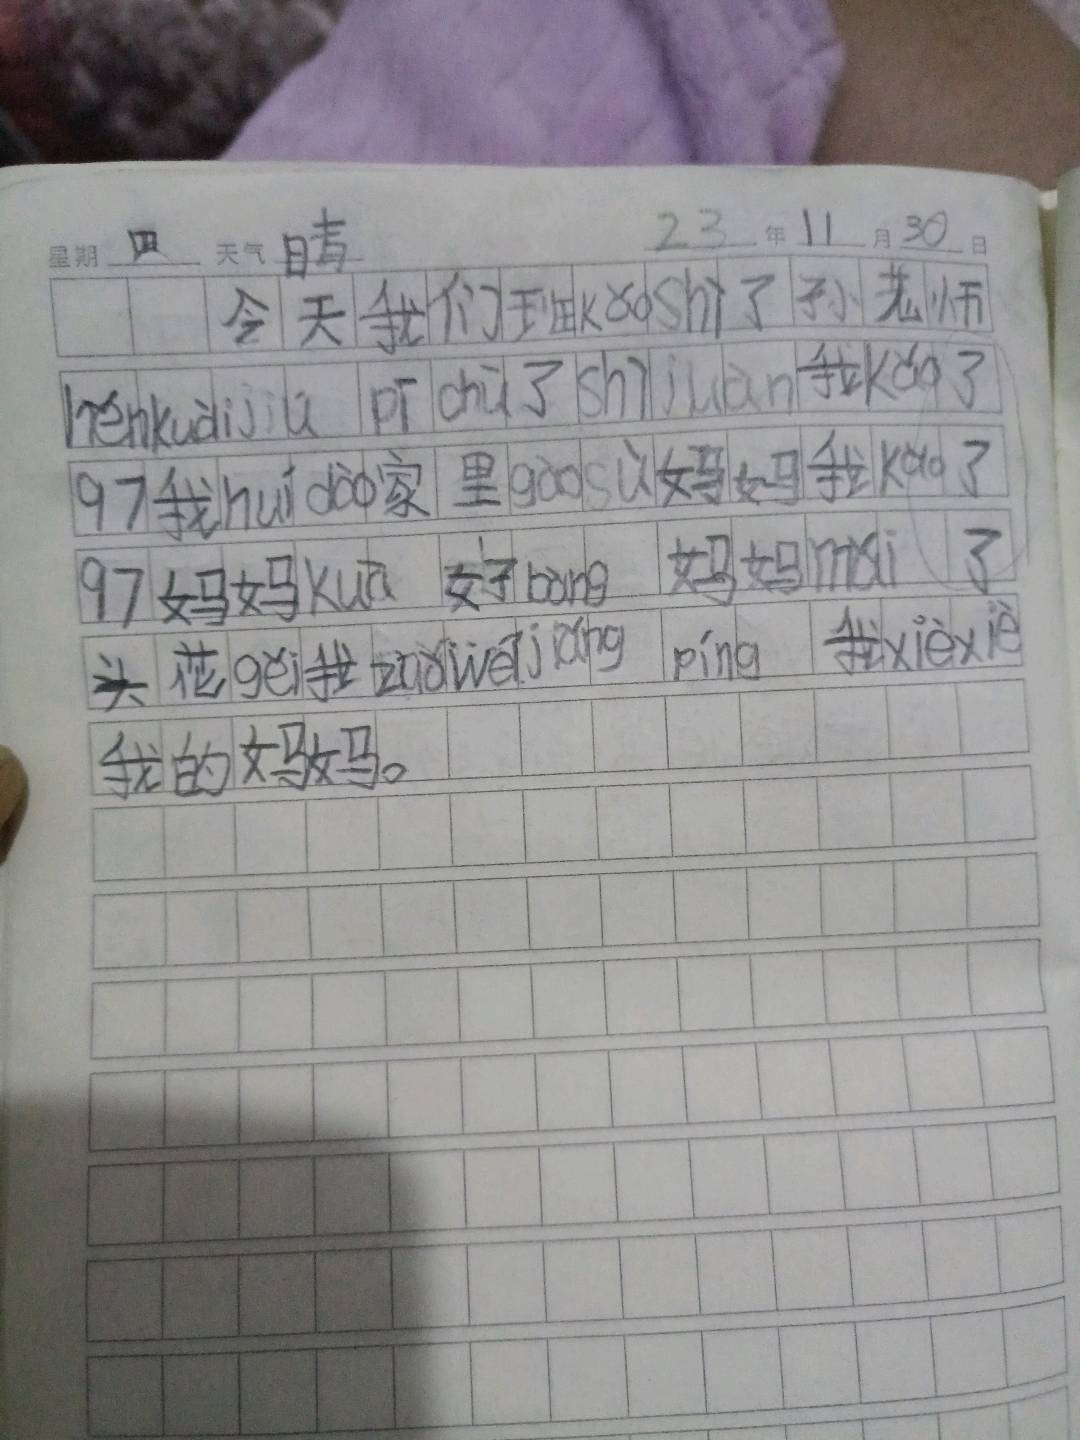 星期 四 天气 晴 23 年 11 月 30 日
今天我们班kǎoshì了孙老师
hěnkuàijiù pī chū了shìjuàn我kǎo了
97我huídào家里gàosù妈妈我kǎo了
97妈妈kuā 好bàng 妈妈mǎi了
头花gěi我zuòwéijiǎng pǐng 我xièxiè
我的妈妈。